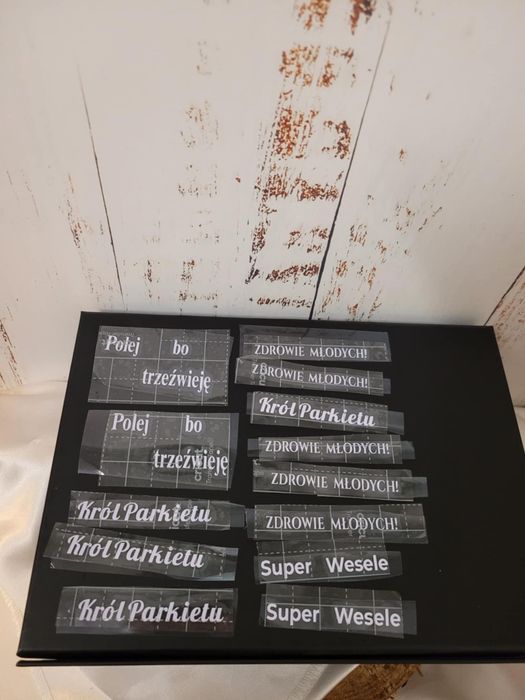 Polej bo
trzeźwieję
Polej bo
trzeźwieję
Król Parkietu
Król Parkietu
Król Parkietu
ZDROWIE MŁODYCH!
ZDROWIE MŁODYCH!
Król Parkietu
ZDROWIE MŁODYCH!
ZDROWIE MŁODYCH!
ZDROWIE MŁODYCH!
Super Wesele
Super Wesele